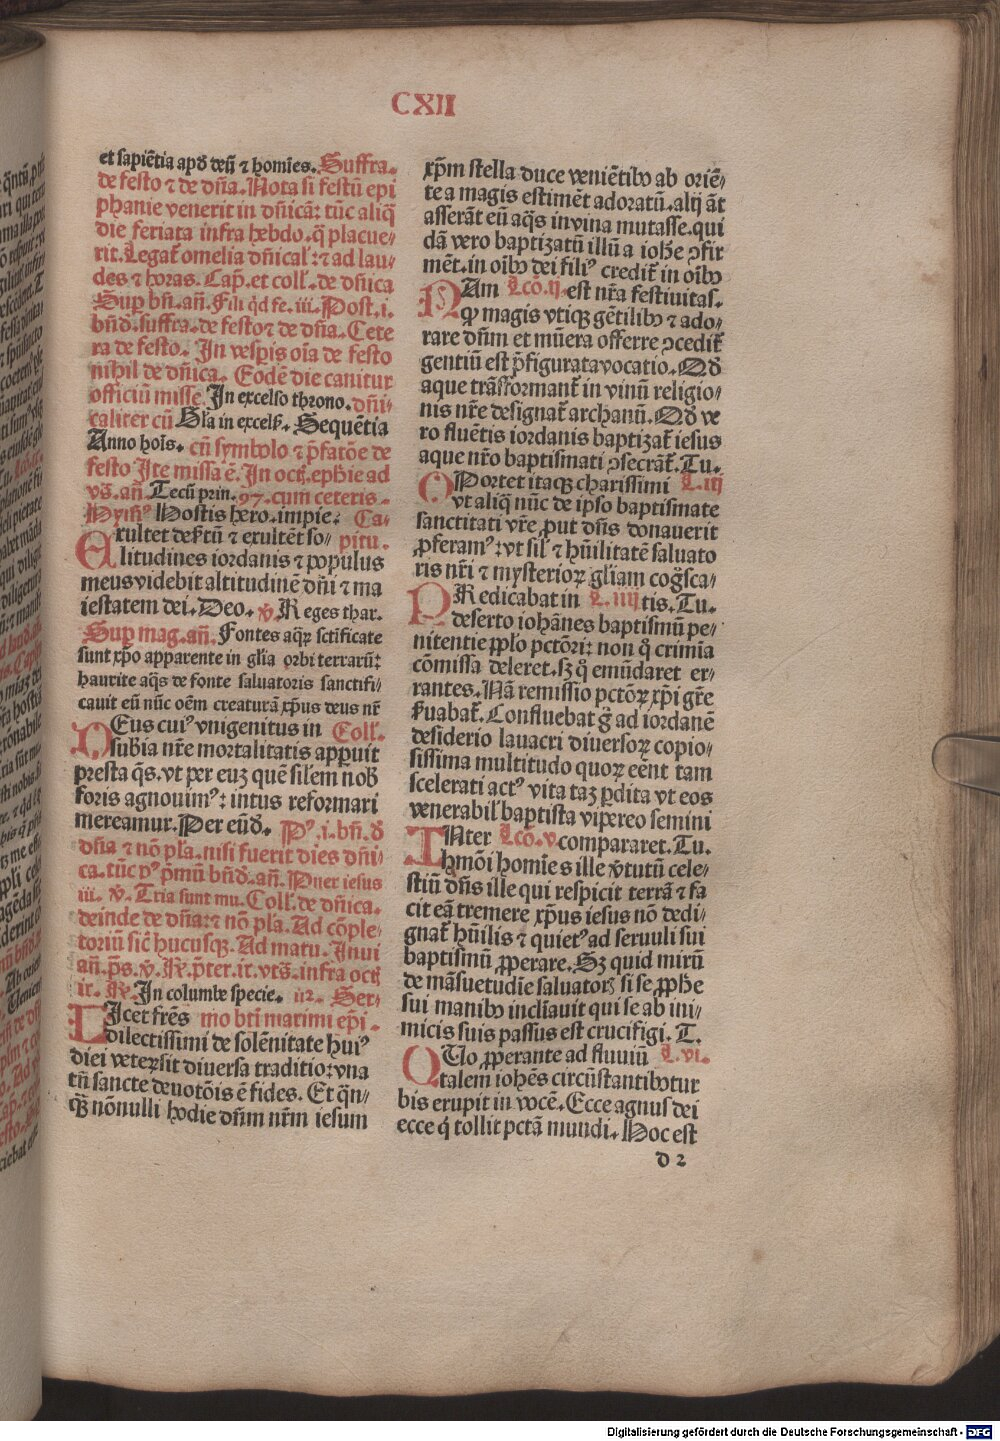 CXII
et sapiẽtia apď deũ ⁊ homĩes. Suffra-
de festo ⁊ de dña. Nota si festũ epi
phanie venerit in dñicã: tũc aliq̃
die feriata infra hebdo. q̃ placue-
rit. Legať omelia dñical': ⁊ ad lau-
des ⁊ horas. Cap̃. et coll'. de dñica
Sup̱ bñ. añ. Fili q̃d fe. iii. Post. i.
bñď. suffra. de festo ⁊ de dña. Cete
ra de festo. In vesp̱is oĩa de festo
nihil de dñica. Eodẽ die canitur
officiũ misse. In excelso throno. dñi-
caliter cũ Gl'a in excels'. Sequẽtia
Anno hoĩs. cũ symbolo ⁊ p̃fatõe de
festo Ite missa ẽ. In octꝭ. ephie ad
vs̃. añ. Tecũ prin. 97. cum ceteris.
Hym̃⁹ Hostis hero. impie. Ca-
EXultet desťtũ ⁊ exultẽt so- pitu.
litudines iordanis ⁊ populus
meus videbit altitudinẽ dñi ⁊ ma
iestatem dei. Deo. ℣. Reges thar.
Sup̱ mag. añ. Fontes aq̃ꝝ sctĩficate
sunt xp̃o apparente in gl'ia orbi terrarũ:
haurite aq̃s de fonte saluatoris sanctifi-
cauit eũ nũc oẽm creaturã xp̃us deus nr̃
DEus cui⁹ vnigenitus in Coll'.
subĩa nr̃e mortalitatis apparuit
presta q̃s. vt per euz quẽ sil'em nob̃
foris agnouim⁹: intus reformari
mereamur. Per eũď. P⁹. i. bñ. ď
dñia ⁊ nõ pl'a. nisi fuerit dies dñi-
ca. tũc p⁹ p̃mũ bñď. añ. Puer iesus
iii. ℣. Tria sunt mu. Coll'. de dñica.
deinde de dña: ⁊ nõ pl'a. Ad cõple-
toriũ sič hucusqꝫ. Ad matu. Inui
añ. p̃s. ℣. ℟. p̃ter. ix. vts̃. infra octꝭ
ix. ℟. In columbe specie. 112. Ser-
LIcet fr̃es mo bťi maximi ep̃i.
dilectissimi de solẽnitate hui⁹
diei veterꝫ sit diuersa traditio: vna
tñ sancte deuotõis ẽ fides. Et q̃n-
q̃ꝫ nõnulli hodie dñm nr̃m iesum
xp̃m stella duce veniẽtibꝫ ab oriẽ-
te a magis estimẽt adoratũ. alij āt
asserãt eũ aq̃s in vina mutasse. qui
dã vero baptizatũ illũ a ioh̃e ꝯfir
mẽt. in oĩbꝫ dei fili⁹ crediť in oĩbꝫ
NAm Lcõ. ij. est nr̃a festiuitas.
qꝫ magis vtiqꝫ gẽtilibꝫ ⁊ ado-
rare dñm et mũera offerre ꝯcediť
gentiũ est p̃figurata vocatio. Qď
aque trãsformanť in vinũ religio-
nis nr̃e designať archanũ. Qď ve
ro fluẽtis iordanis baptizať iesus
aque nr̃o baptismati ꝯsecrãť. Tu.
OPortet itaqꝫ charissimi L. iij
vt aliq̃ nũc de ipso baptismate
sanctitati vr̃e ꝓut dñs donauerit
ꝓferam⁹: vt sil' ⁊ hũilitatẽ saluato
ris nr̃i ⁊ mysterioꝝ gl'iam cog̃sca-
PRedicabat in L. iiij tis. Tu.
deserto iohãnes baptismũ pe-
nitentie pp̱lo pctõri: non q̇ crimĩa
cõmissa deleret. sꝫ q̇ emũdaret er-
rantes. Nã remissio pctõꝝ xp̃i gr̃e
ẜuabať. Confluebat g̃ ad iordanẽ
desiderio lauacri diuersoꝝ copio-
sissima multitudo quoꝝ eent tam
scelerati act⁹ vita taꝫ p̱dita vt eos
venerabil' baptista vipereo semini
INter Lcõ. v. compararet. Tu.
hmõi homĩes ille ṽtutũ cele-
stiũ dñs ille qui respicit terrã ⁊ fa
cit eã tremere xp̃us iesus nõ dedi-
gnať hũilis ⁊ quiet⁹ ad seruuli sui
baptismũ ꝓperare. Sꝫ quid mirũ
de mãsuetudĩe saluatorꝭ si se ꝓphe
sui manibꝫ inclĩauit qui se ab ini-
micis suis passus est crucifigi. T.
QUo ꝓperante ad fluuiũ L. vi.
talem ioh̃es circũstantibꝫ tur
bis erupit in vocẽ. Ecce agnus dei
ecce q̇ tollit pctã mundi. Hoc est
d 2
Digitalisierung gefördert durch die Deutsche Forschungsgemeinschaft - DFG